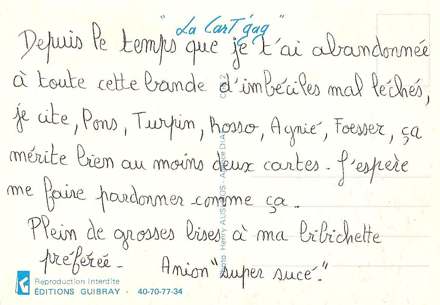 " La CarT'gag "
Depuis le temps que je t'ai abandonnée
à toute cette bande d'imbéciles mal léchés,
je cite, Pons, Turpin, Rosso, Agnié, Foesser, ça
mérite bien au moins deux cartes. J'espère
me faire pardonner comme ça.
Plein de grosses bises à ma bibichette
préférée.
Anion "super sucé."
Reproduction Interdite
ÉDITIONS GUIBRAY - 40-70-77-34